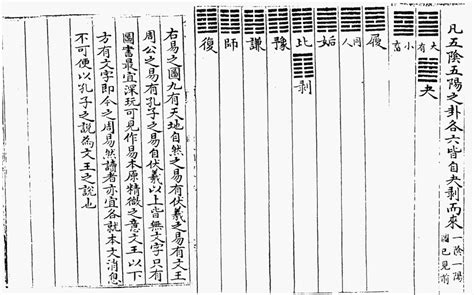 凡五陰五陽之卦各六皆自夬剝而來
一陰一陽
圖已見前
大有
夬
小畜
履
同人
姤
比
剝
豫
謙
師
復
右易之圖九有天地自然之易有伏羲之易有文王
周公之易有孔子之易自伏羲以上皆無文字只有
圖書最宜深玩可見作易本原精微之意文王以下
方有文字即今之周易然讀者亦宜各就本文消息
不可便以孔子之說為文王之說也